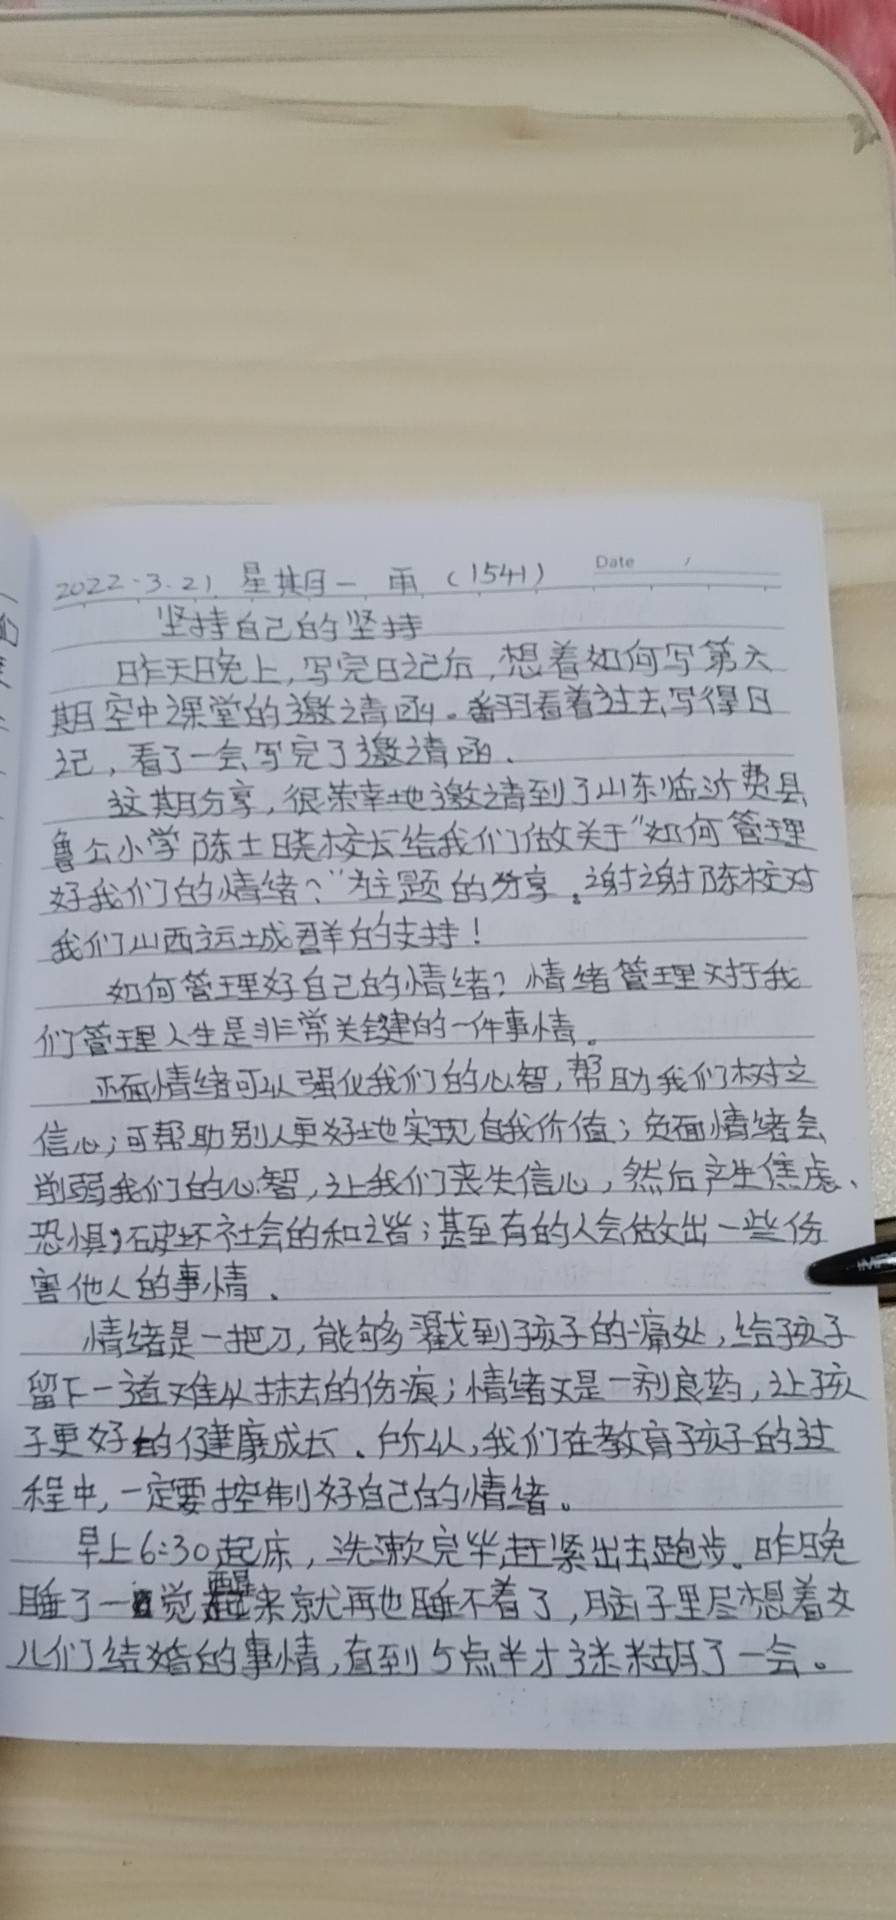 Date /
2022.3.21 星期一 雨 (1541)
坚持自己的坚持
昨天晚上,写完日记后,想着如何写第六
期空中课堂的邀请函。翻看着过去写得日
记,看了一会写完了邀请函.
这期分享,很荣幸地邀请到了山东临沂费县
鲁公小学陈士晓校长给我们做关于"如何管理
好我们的情绪?"为主题的分享。谢谢陈校对
我们山西运城群的支持!
如何管理好自己的情绪?情绪管理对于我
们管理人生是非常关键的一件事情。
正面情绪可以强化我们的心智,帮助我们树立
信心;可帮助别人更好地实现自我价值;负面情绪会
削弱我们的心智,让我们丧失信心,然后产生焦虑、
恐惧,破坏社会的和谐;甚至有的人会做出一些伤
害他人的事情.
情绪是一把刀,能够戳到孩子的痛处,给孩子
留下一道难以抹去的伤痕;情绪又是一剂良药,让孩
子更好的健康成长.所以,我们在教育孩子的过
程中,一定要控制好自己的情绪。
早上6:30起床,洗漱完毕,赶紧出去跑步。昨晚
睡了一觉醒来就再也睡不着了,脑子里尽想着女
儿们结婚的事情,直到5点半才迷糊了一会。